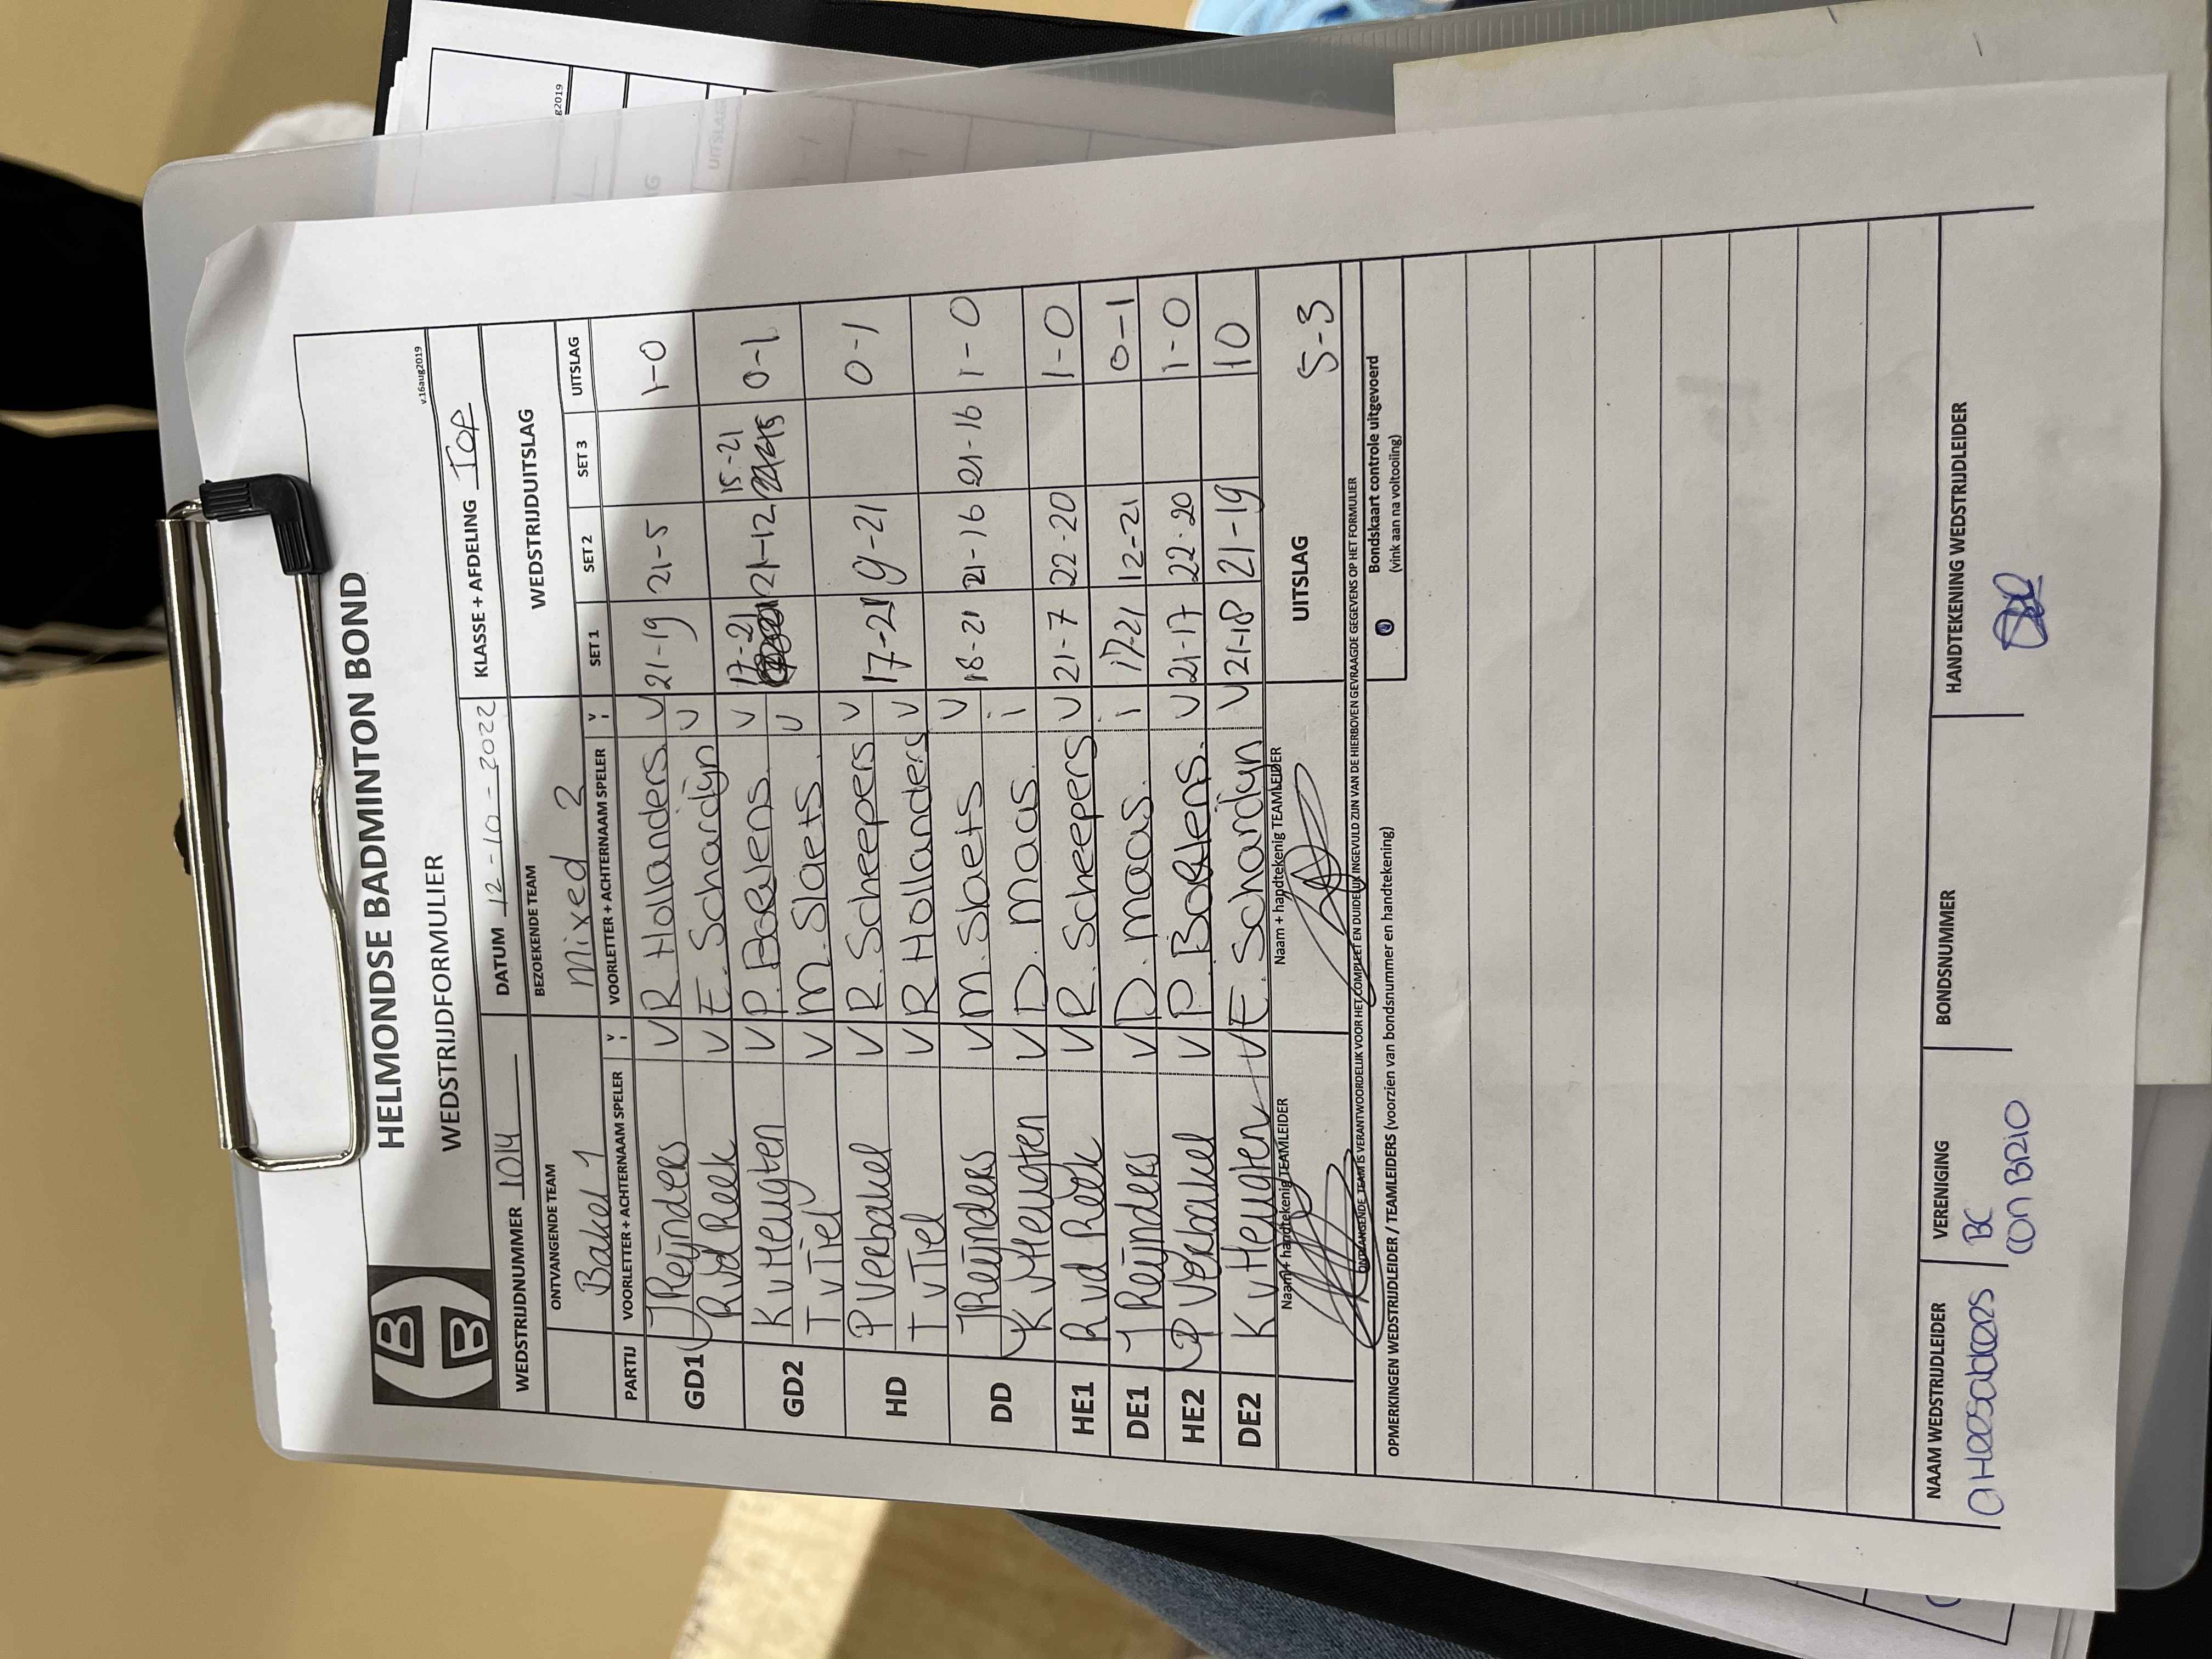 HELMONDSE BADMINTON BOND
WEDSTRIJDFORMULIER
v.16aug2019
WEDSTRIJDNUMMER 1014 DATUM 12-10-2022 KLASSE + AFDELING TOP
ONTVANGENDE TEAM BEZOEKENDE TEAM WEDSTRIJDUITSLAG
Bakel 1 Mixed 2
PARTIJ VOORLETTER + ACHTERNAAM SPELER V I VOORLETTER + ACHTERNAAM SPELER V I SET 1 SET 2 SET 3 UITSLAG
GD1 J Reijnders V R. Hollanders V 21-19 21-5 1-0
R vd Reek V E. Schardijn V
GD2 K v Heugten V P. V 17-21 21-12 15-21 0-1
T v Tiel V M. Slaets. V
HD P Verbakel V R. Scheepers V 17-21 9-21 0-1
T v Tiel V R Hollanders V
DD J Reijnders V M. Slaets V 18-21 21-16 21-16 1-0
K v Heugten V D. Maas. i
HE1 R vd Reek V R. Scheepers V 21-7 22-20 1-0
DE1 J Reijnders V D. Maas. i 17-21 12-21 0-1
HE2 P Verbakel V P. V 21-17 22-20 1-0
DE2 K v Heugten V E. Schardijn V 21-18 21-19 10
Naam + handtekenig TEAMLEIDER Naam + handtekenig TEAMLEIDER UITSLAG 5-3
ONTVANGENDE TEAM IS VERANTWOORDELIJK VOOR HET COMPLEET EN DUIDELIJK INGEVULD ZIJN VAN DE HIERBOVEN GEVRAAGDE GEGEVENS OP HET FORMULIER
OPMERKINGEN WEDSTRIJDLEIDER / TEAMLEIDERS (voorzien van bondsnummer en handtekening)
Bondskaart controle uitgevoerd
(vink aan na voltooiing)
NAAM WEDSTRIJDLEIDER VERENIGING BONDSNUMMER HANDTEKENING WEDSTRIJDLEIDER
BC
CON BRIO